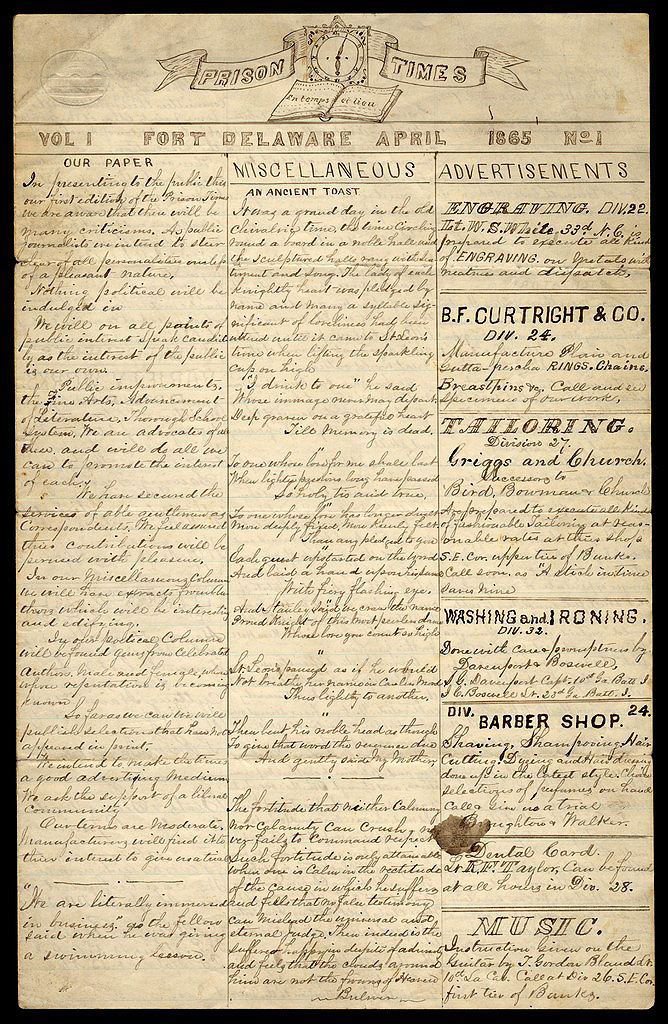 PRISON TIMES
En temps et lieu
VOL 1 FORT DELAWARE APRIL 1865 No 1
OUR PAPER
In presenting to the public this
our first edition of the Prison Times
we are aware that there will be
many criticisms. As public
journalists we intend to steer
clear of all personalities unless
of a pleasant nature.
Nothing political will be
indulged in
We will on all points of
public interest speak candid
ly as the interest of the public
is our own.
Public improvements,
the Fine Arts, Advancement
of Literature, Thorough School
System, We are advocates of
these, and will do all we
can to promote the interest
of each.
We have secured the
services of able gentlemen as
Correspondents. We feel assured
their contributions will be
perused with pleasure.
In our Miscellaneous Column
we will have extracts from
thors which will be interesting
and edifying.
In our Poetical Column
will be found gems from Celebrated
Authors, Male and female, whose
whose reputation is becoming
known
So far as we can we will
publish selections that have not
appeared in print.
We intend to make the times
a good advertising medium
We ask the support of a liberal
Community
Our terms are moderate.
Manufacturers will find it to
their interest to give us a trial
"We are literally immersed
in business," as the fellow
said when he was giving
a swimming lesson.
MISCELLANEOUS
AN ANCIENT TOAST
It was a grand day in the old
chivalric time, the wine circling
round a board in a noble hall and
the sculptured halls rang with sen
timent and song. The lady of each
knightly heart was pledged by
name and many a syllable sig-
nificant of loveliness had been
uttered until it came to St. Leon's
time when lifting the sparkling
Cup on high
"I drink to one" he said
Whose immage never may depart
Deep graven on a grateful heart
Till Memory is dead.
To one whose love for me shall last
When lighter passions long have passed
So holy tis and true.
To one whose love has longer dwelt
More deeply fixed, more keenly felt
Than any pledged to you
Each guest upstarted on the word
And laid a hand upon his sword
With fiery flashing eye.
And Stanley said, we crave the name
Proud Knight of this most peerless dame
Whose love you count so high
St. Leon paused as if he would
Not breathe her name in Careless Mood
Thus lightly to another.
Then bent his noble head as though
To give that word the reverence due
And gently said My Mother.
The fortitude that neither Calumny
Nor Calamity Can Crush,
ver fails to Command respect
Such fortitude is only attainable
when one is Calm in the rectitude
of the Cause in which he suffers
and feels that no false testimony
Can mislead the universal and
eternal judge. Then indeed is the
sufferer happy in despite of
and feels that the clouds around
him are not the frowns of Heaven
Bulwer
ADVERTISEMENTS
ENGRAVING. DIV. 22.
Lt. W. S. White, 33d N.C. is
prepared to execute all kinds
of ENGRAVING on Metals with
neatness and dispatch.
B.F. CURTRIGHT & CO.
DIV. 24.
Manufacture Plain and
Gutta-percha RINGS, Chains,
Breastpins &c. Call and see
Specimens of our work.
TAILORING.
Division 27.
Griggs and Church.
Successors to
Bird, Bowman & Church
Are prepared to execute all kinds
of fashionable Tailoring at reas-
onable rates at their shop
S.E. Cor. upper tier of Bunks.
Call soon, as "A stitch in time
saves nine
WASHING and IRONING.
DIV. 32.
Done with care & promptness by
Davenport & Boswell,
J. C. Davenport Capt. 10th Ga Batt I
J. C. Boswell Lt. 23d Ga Batt. I.
DIV. 24.
BARBER SHOP.
Shaving, Shampooing, Hair
Cutting, Dying and Hair dressing
done up in the latest style. Choice
selections of perfumes on hand
Call & give us a trial
Boughton & Walker.
Dental Card.
Lt. R. F. Taylor, Can be found
at all hours in Div. 28.
MUSIC.
Instruction given on the
Guitar by T. Gordon Bland Lt.
10th La Cav. Call at Div 26. S.E. Cor
first tier of Bunks.